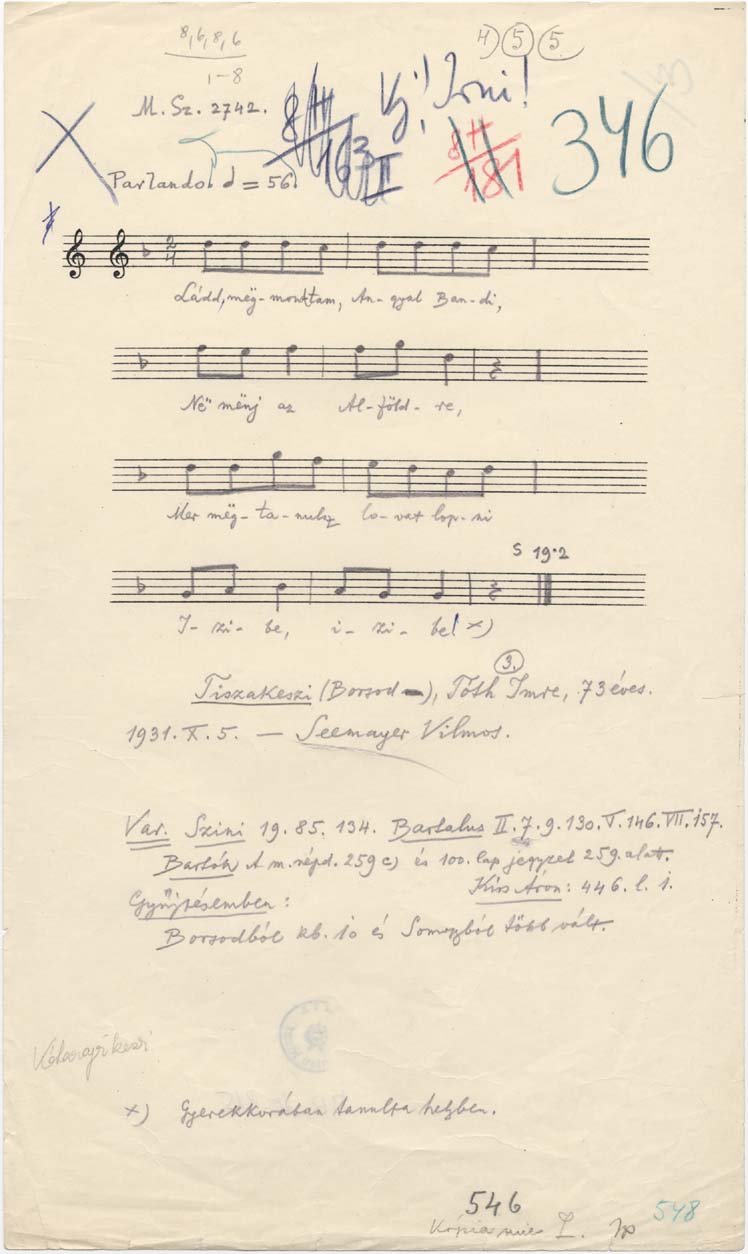 8,6,8,6
4) 5 5
1-8
M. Sz. 2742.
8 II
163
II
Írni!
8 II
181
346
Parlando. = 56.
2
4
Ládd, mëg-mondtam, An-gyal Ban-di,
Në mënj az Al-föld-re,
Mer mëg-ta-nulsz lo-vat lop-ni
S 19.2
I-zi-be, i-zi-be! x)
3.
Tiszakeszi (Borsod), Tóth Imre, 73 éves.
1931. X. 5. — Seemayer Vilmos.
Var. Szini 19. 85. 134. Bartalus II. 7. 9. 130. V. 146. VII. 157.
Bartók A m. népd. 259 c) és 100. lap jegyzet 259. alatt.
Kiss Áron: 446. l. 1.
Gyűjtésemben:
Borsodból kb. 10 és Somogyból több vált.
x) Gyerekkorában tanulta helyben.
546
548